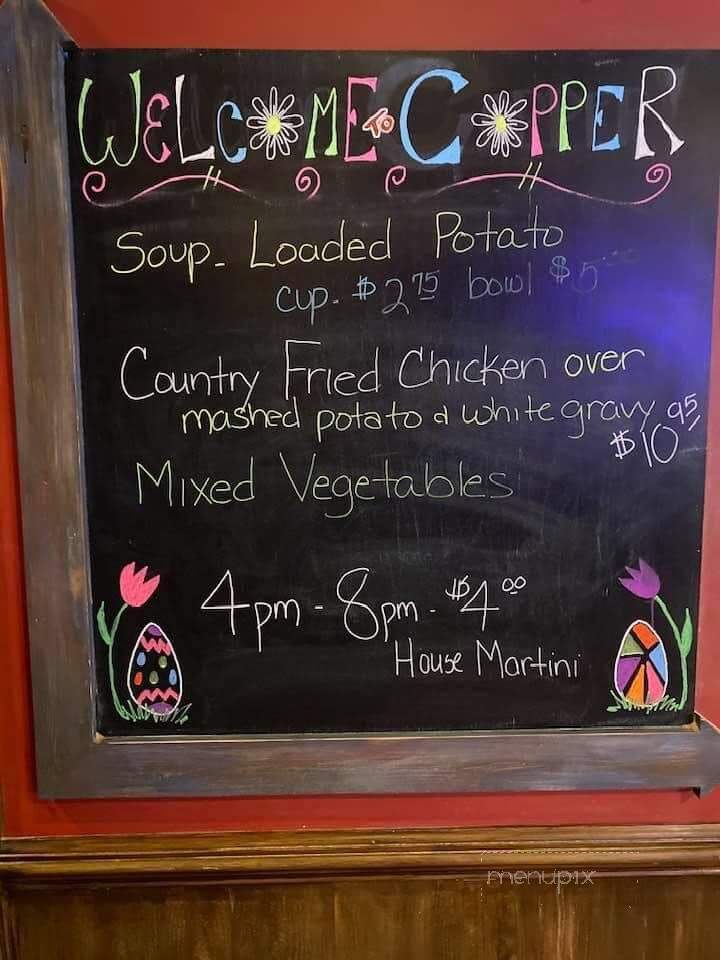 WELCOME TO COPPER
Soup- Loaded Potato
cup- $2.75 bowl $5.00
Country Fried Chicken over
mashed potato & white gravy
$10.95
Mixed Vegetables
4pm - 8pm - $4.00
House Martini
menupix